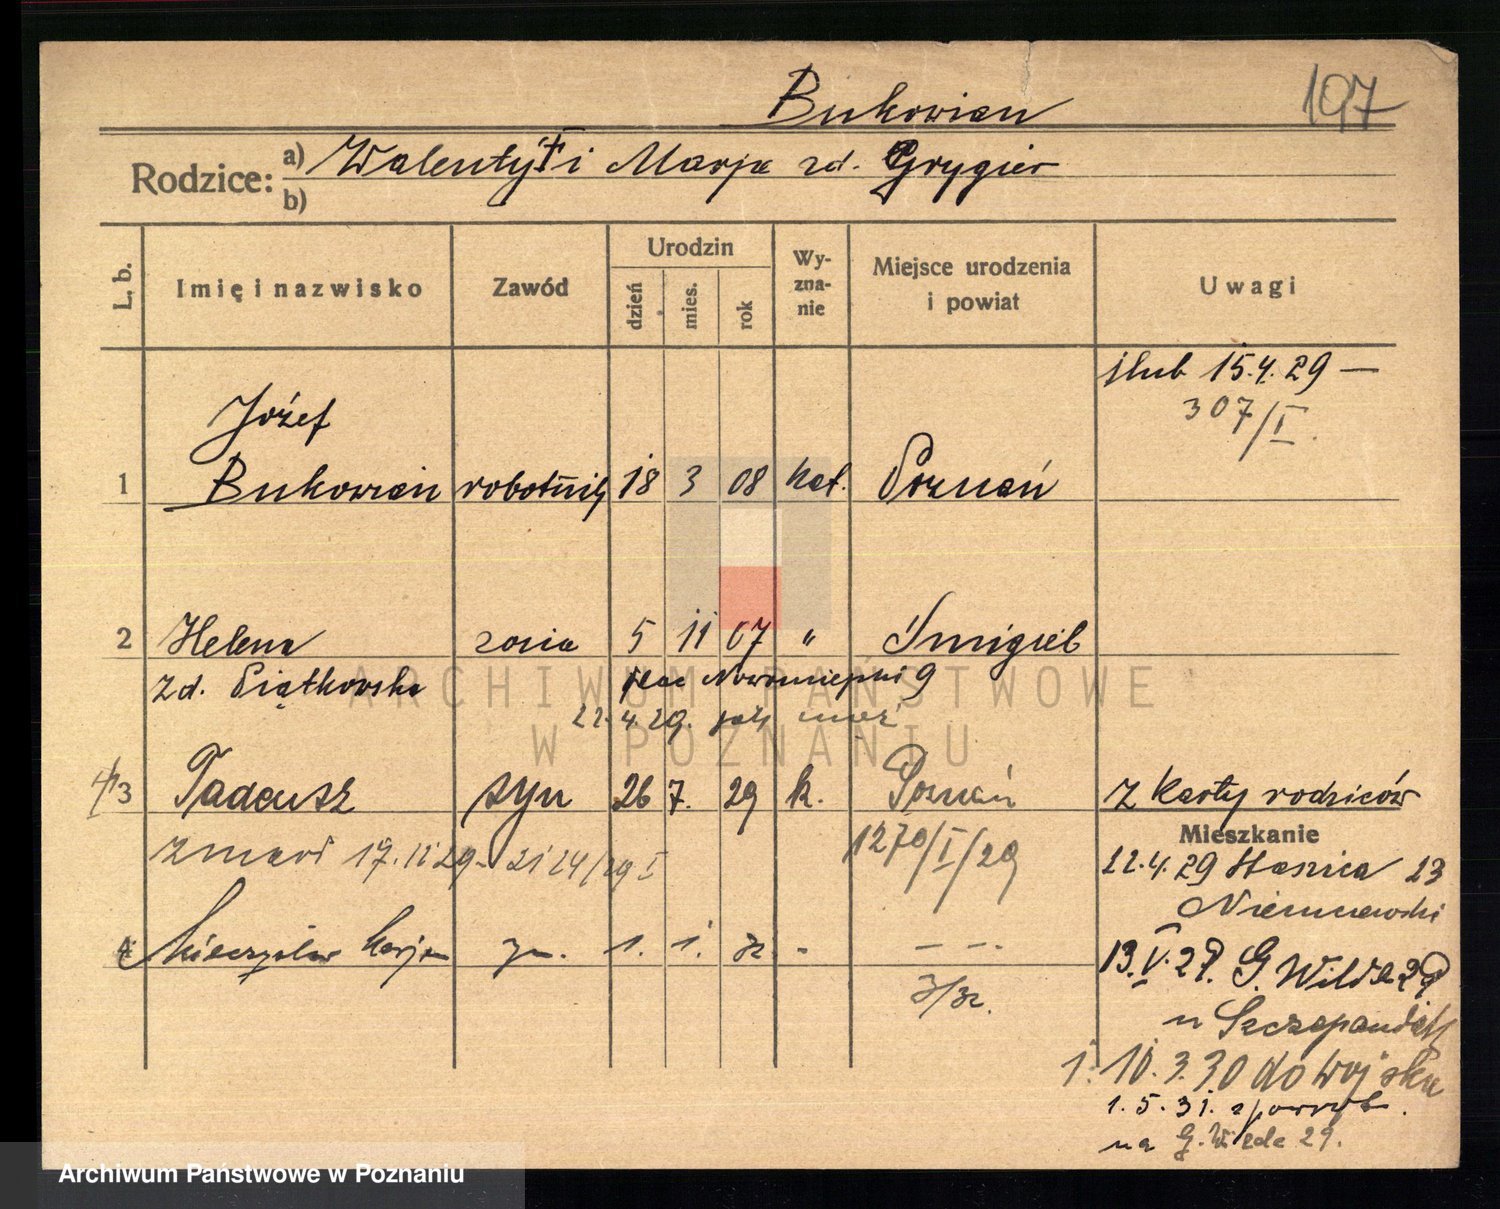 Bukowian 197
Rodzice: a) Walenty † i Marja zd. Grygier
b)
L. b. Imię i nazwisko Zawód Urodzin dzień mies. rok Wyznanie Miejsce urodzenia i powiat Uwagi
ślub 15.4.29 —
307/I.
Józef
1 Bukowian robotnik 18 3 08 kat. Poznań
2 Helena żona 5 11 07 " Śmigiel
zd. Piątkowska plac Nowomiejski 9
22.4.29.
3 Tadeusz syn 26 7. 29 k. Poznań z karty rodziców
Mieszkanie
zmarł 17.11 29 - 2124/29 I 1270/I/29
22.4.29 23
4 Mieczysław Marjan syn. 1. 1. 32. - — —.
3/32.
13.V.29. G. Wilda 29
u
1. 10.3.30 do wojska
1.5.31. z powrotem
na G. Wilda 29.
ARCHIWUM PAŃSTWOWE
W POZNANIU
Archiwum Państwowe w Poznaniu